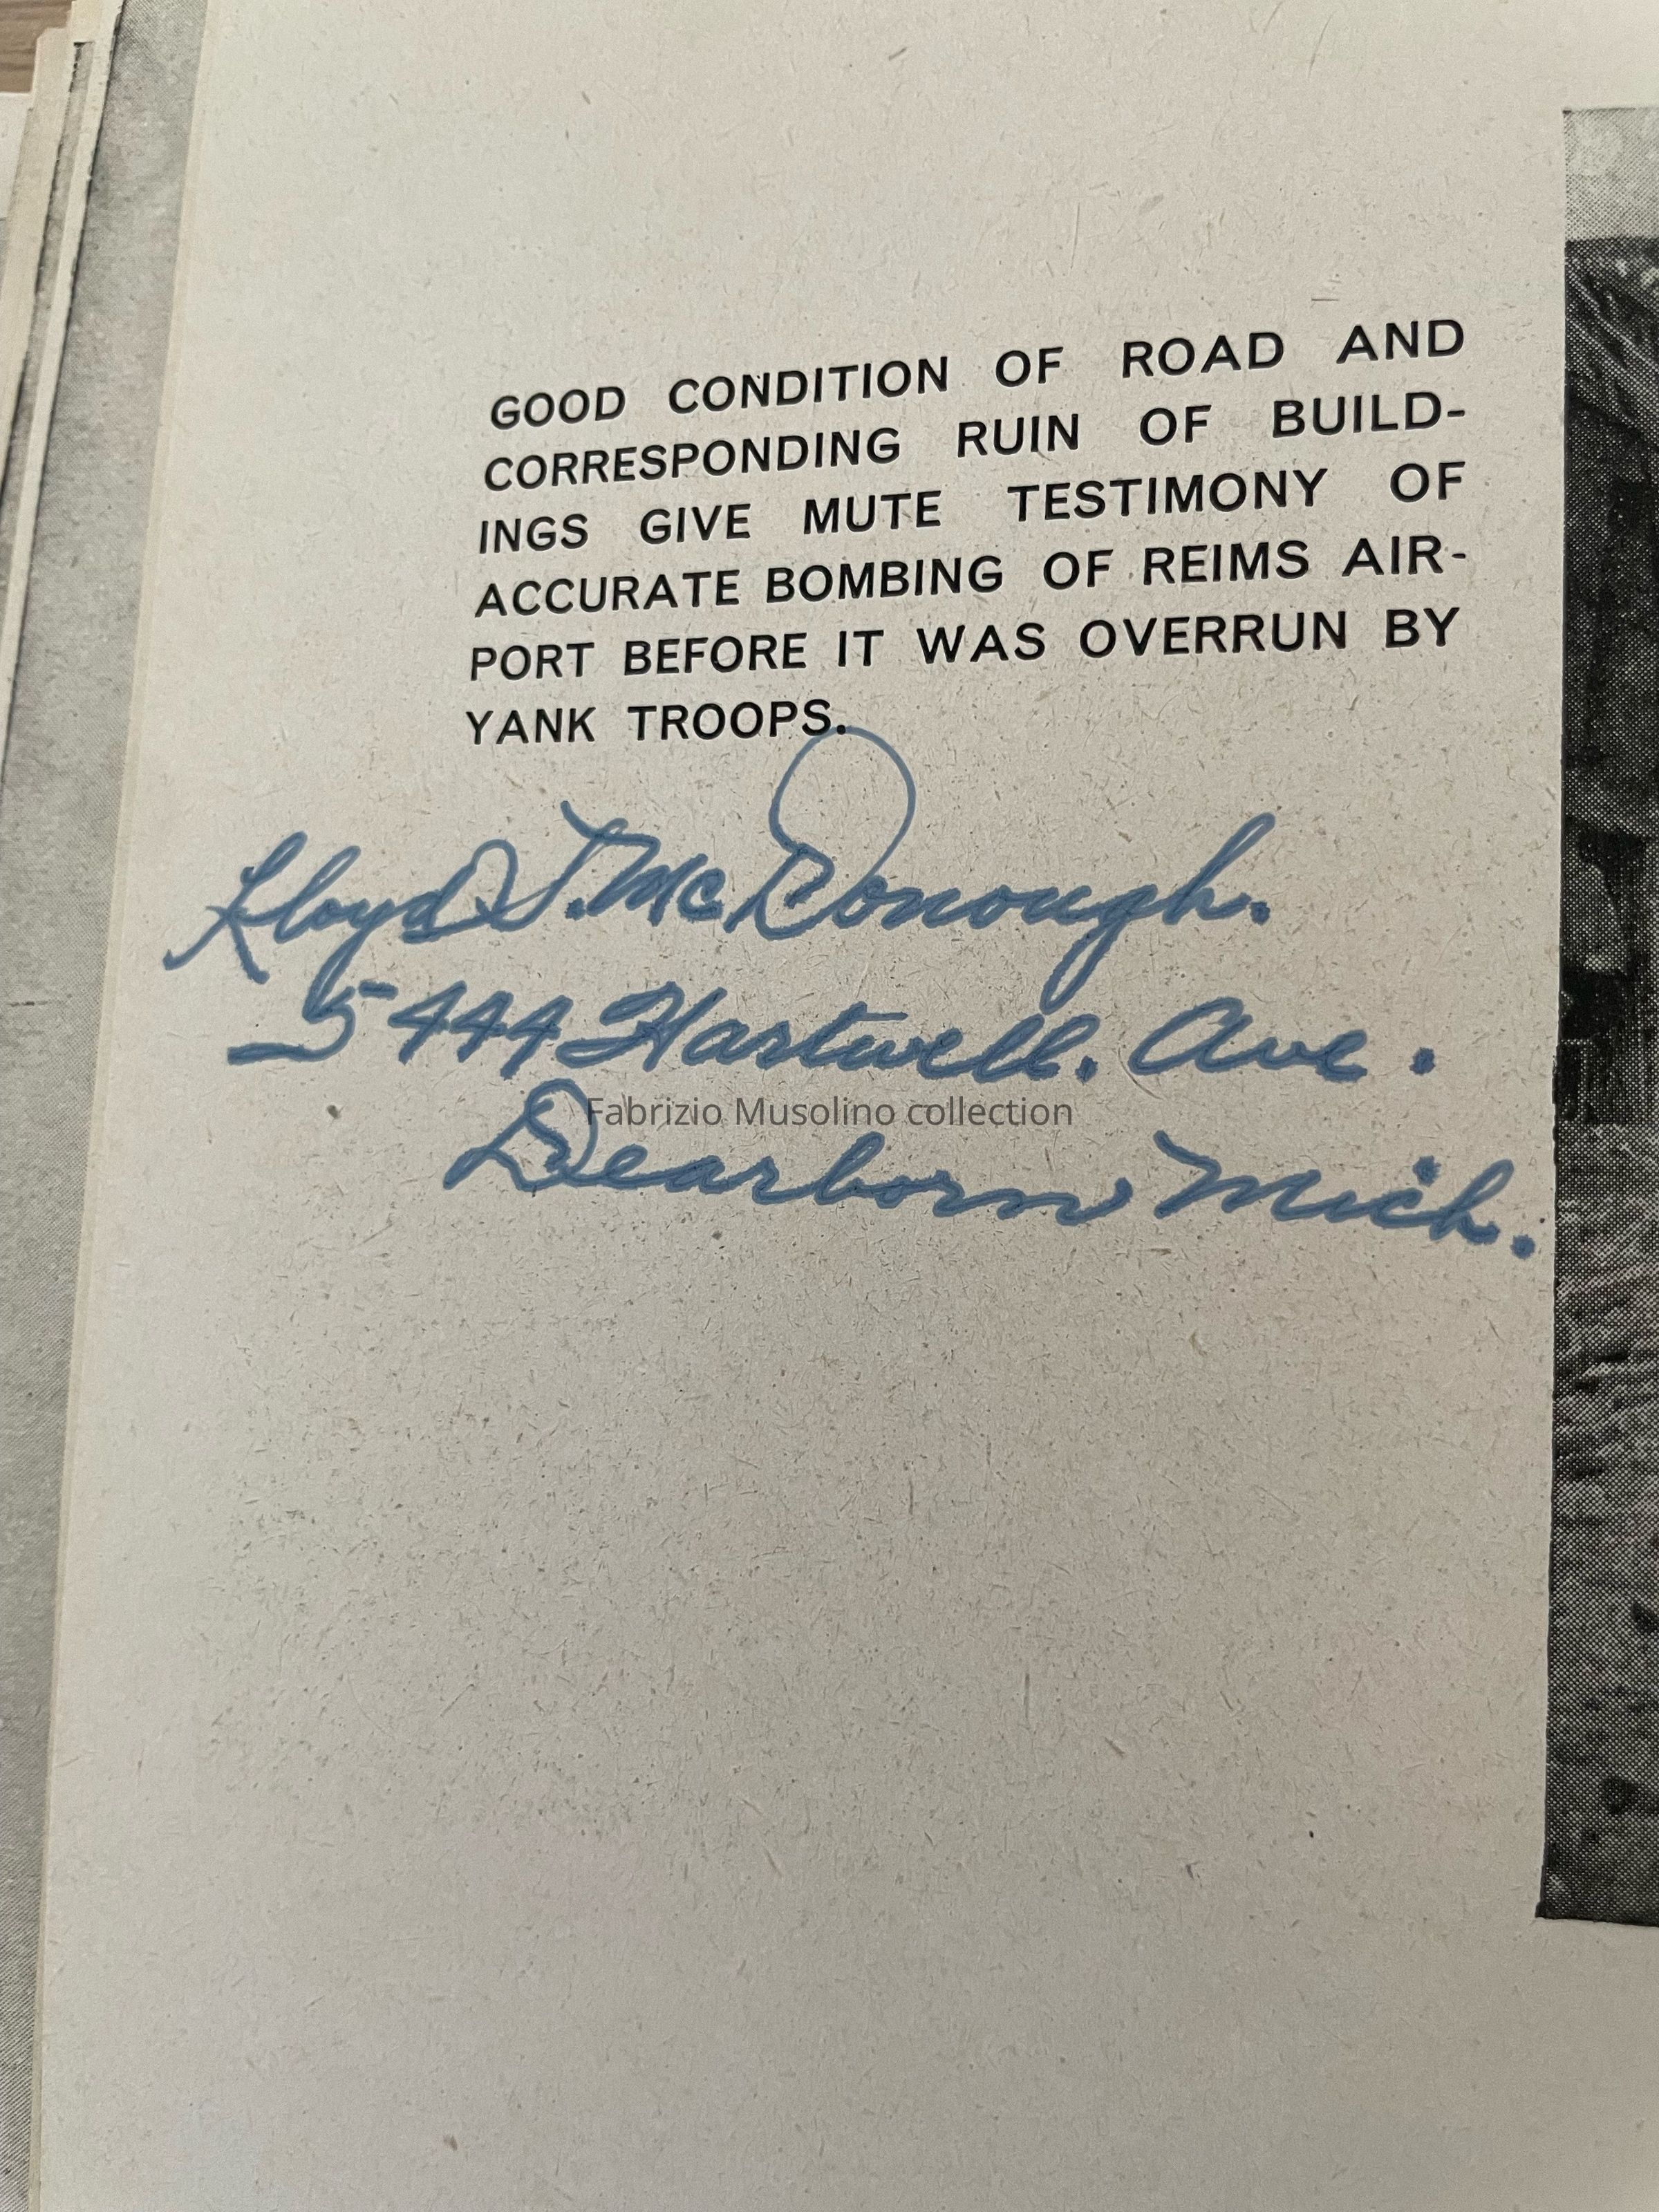 GOOD CONDITION OF ROAD AND
CORRESPONDING RUIN OF BUILD-
INGS GIVE MUTE TESTIMONY OF
ACCURATE BOMBING OF REIMS AIR-
PORT BEFORE IT WAS OVERRUN BY
YANK TROOPS.
Lloyd J. McDonough.
5444 Hartwell. Ave.
Fabrizio Musolino collection
Dearborn Mich.